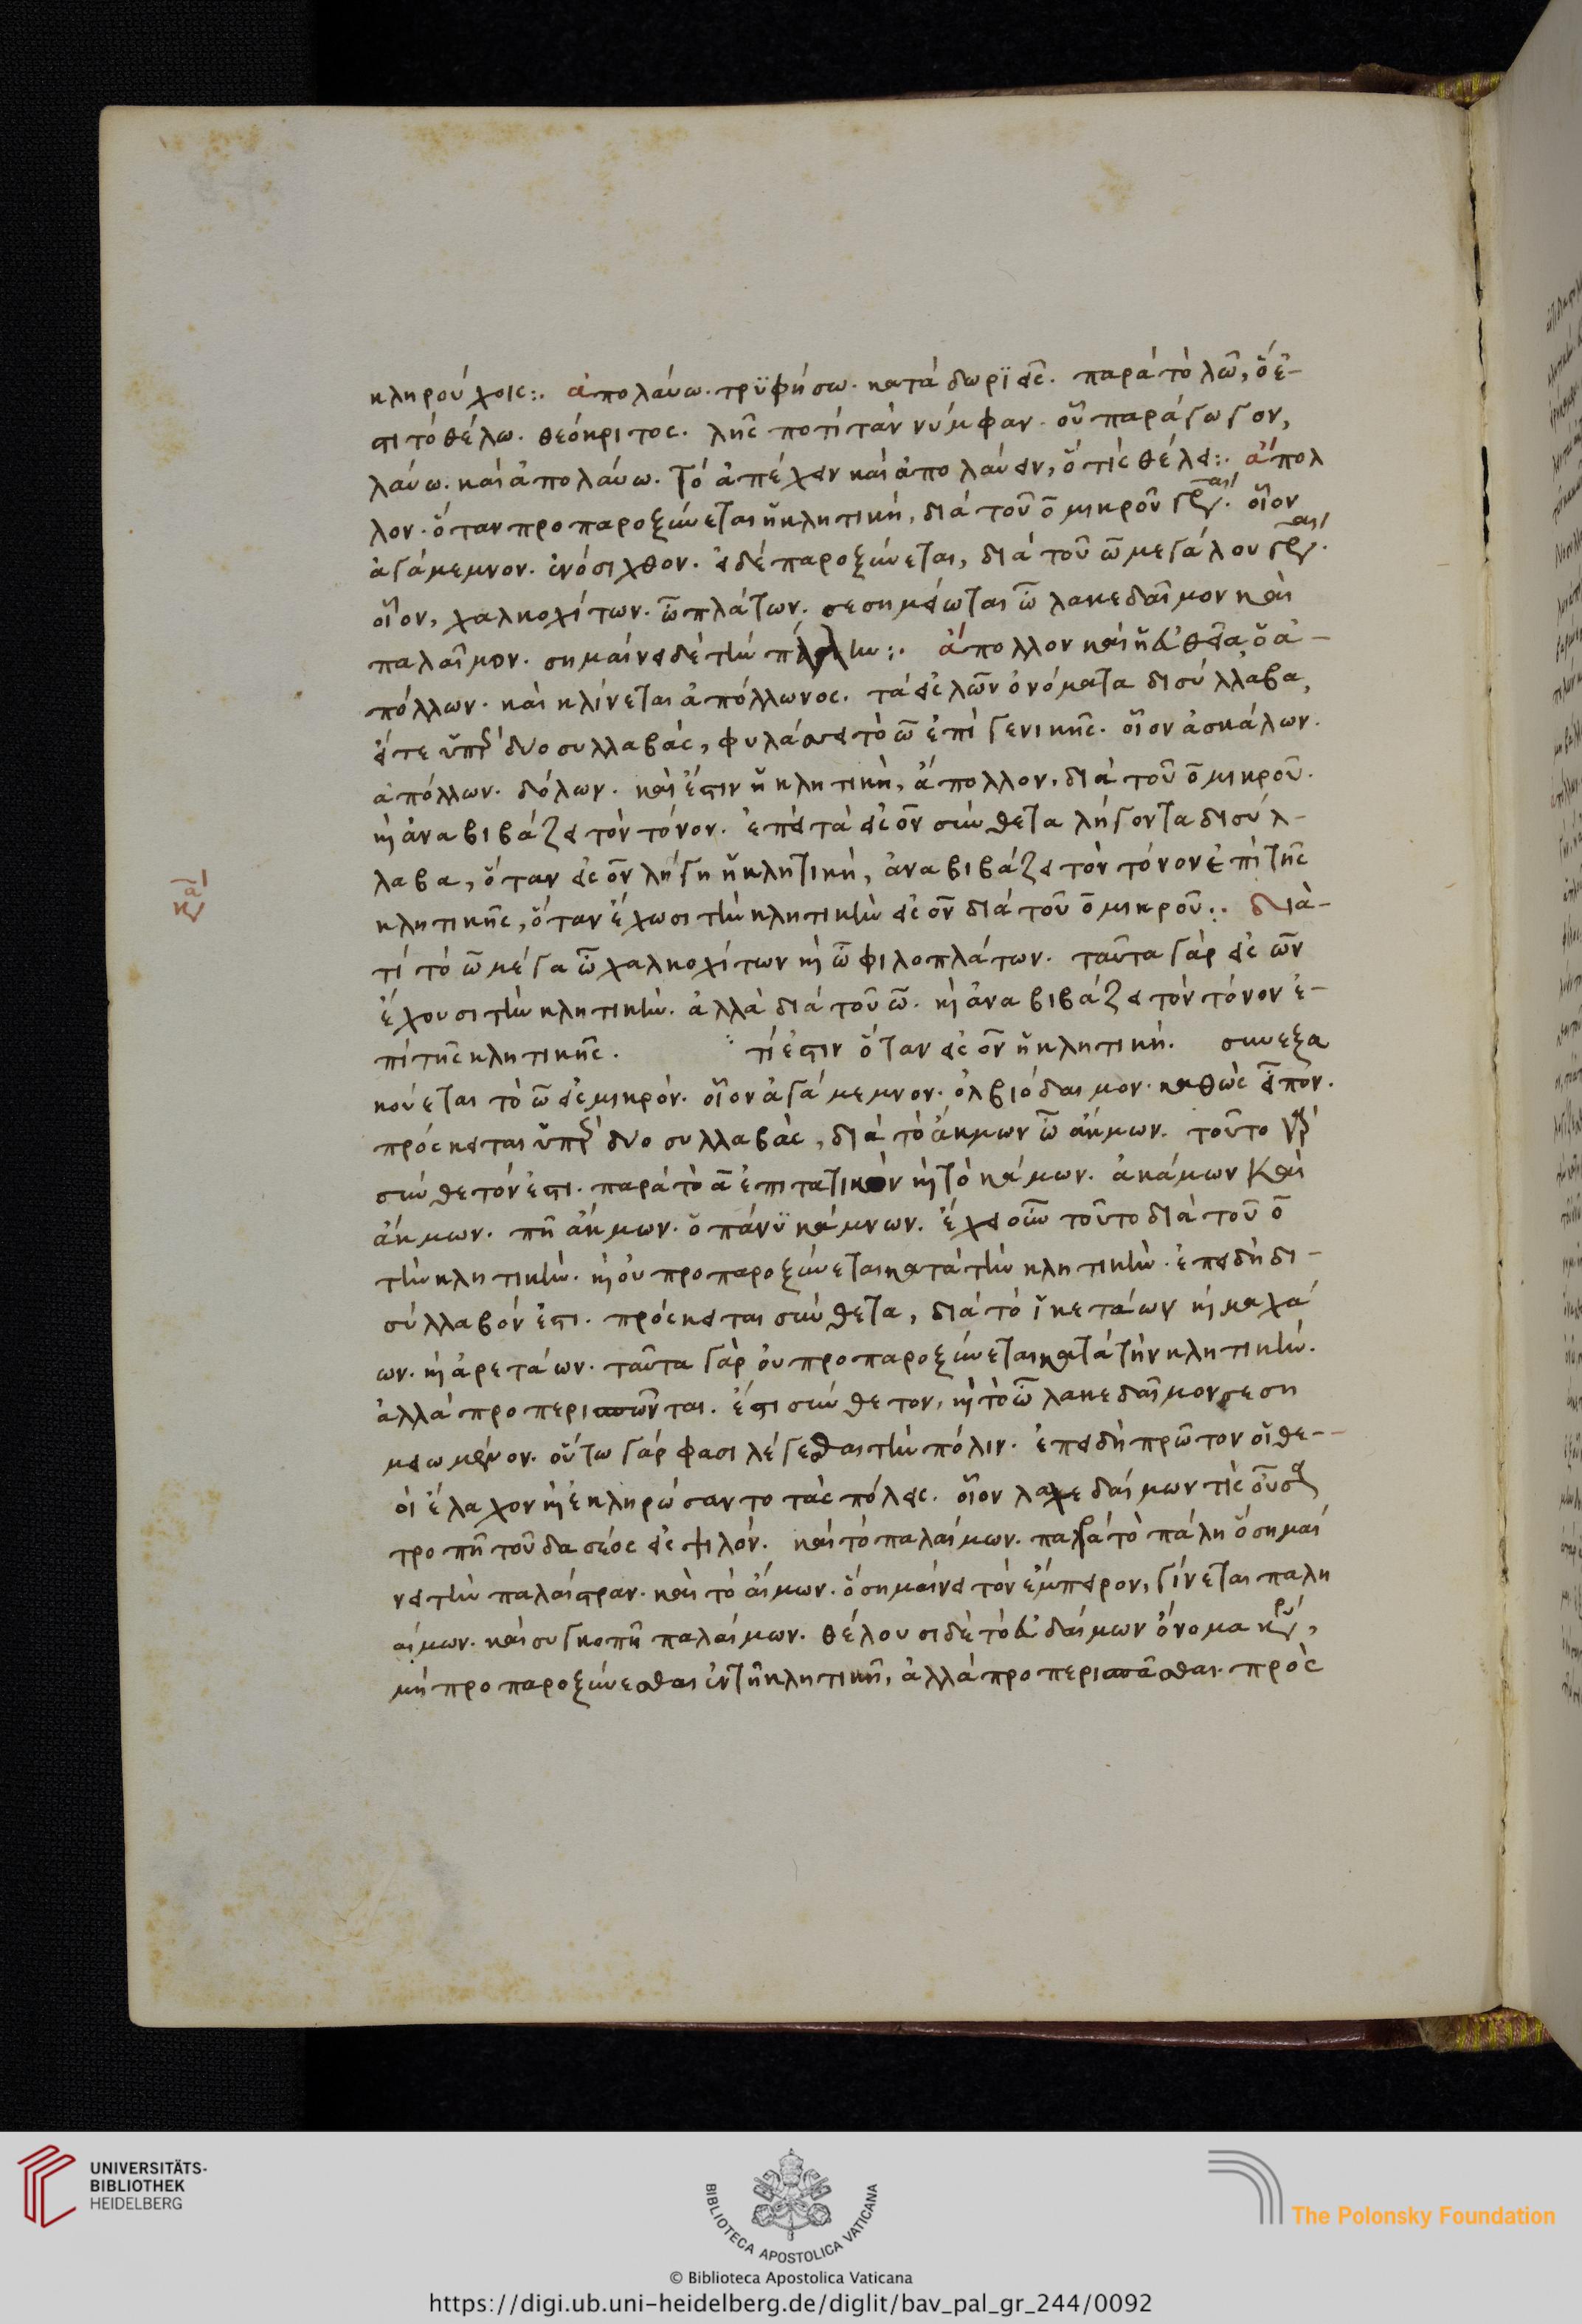 κληρούχοις:. ἀπολάυω. τρϋφήσω. κατά δωρϊεῖς. παρά τὸ λῶ, ὅ ἐ-
στι τό θέλω. θεόκριτος. λῆς ποτί τάν νύμφαν. οὗ παράγωγον,
λάυω. και ἀπολάυω. Τό ἀπέχειν και ἀπολάυειν, ὅ τὶς θέλει:. ἄπολ
λον. ὅταν προπαροξύνεται ἡ κλητική, διά τοῦ ο μικροῦ γράφεται. οἷον
ἀγάμεμνον. ἐνόσιχθον. εἰ δέ παροξύνεται, διά τοῦ ω μεγάλου γράφεται.
οἷον, χαλκοχίτων. ὦ πλάτων. σεσημείωται ὦ λακεδαῖμον καὶ
παλαῖμον. σημαίνει δέ τὴν
ἄπολλον καὶ ἡ εὐθεῖα, ὁ ἀ-
πόλλων. και κλίνεται ἀπόλλωνος. τά εἰς λων ὀνόματα δισύλλαβα,
εἴτε ὑπὲρ δυο συλλαβάς, φυλάσσει τὸ ω ἐπὶ γενικῆς. οἷον ἀσκάλων.
ἀπόλλων. δόλων. καὶ ἔστιν ἡ κλητικὴ, ἄπολλον. διά τοῦ ο μικροῦ.
κὶ ἀναβιβάζει τὸν τόνον. ἐπεὶ τὰ εἰς ον σύνθετα λήγοντα δισύλ-
λαβα, ὅταν εἰς ον λήγη ἡ κλητική, ἀναβιβάζει τὸν τόνον ἐπὶ τῆς
κλητικῆς, ὅταν ἔχωσι τὴν κλητικὴν εἰς ον διά τοῦ ο μικροῦ:. διὰ-
τί τό ω μέγα ὦ χαλκοχίτων κὶ ὦ φιλοπλάτων. ταῦτα γὰρ εἰς ων
ἔχουσι τὴν κλητικὴν. ἀλλὰ διά τοῦ ω. κὶ ἀναβιβάζει τὸν τόνον ἐ-
πὶ τῆς κλητικῆς. τί ἐστιν ὅταν εἰς ον ἡ κλητική. συνεξα
κούεται τὸ ω εἰς μικρόν. οἷον ἀγάμεμνον. ὀλβιόδαιμον. καθὼς εἶπον.
πρόσκειται ὑπὲρ δυο συλλαβάς, διά τὸ ἄκμων ὦ ἄκμων. τοῦτο γὰρ
σύνθετόν ἐστι. παρά τὸ α ἐπιτατικὸν κὶ τὸ κάμων. ἀκάμων Και
ἄκμων. ὁ πάνϋ κάμνων. ἔχει οὖν τοῦτο διά τοῦ ο
τὴν κλητικὴν. κὶ οὐ προπαροξύνεται κατά τὴν κλητικὴν. ἐπειδὴ δι-
σύλλαβόν ἐστι. πρόσκειται σύνθετα, διά τό ἱκετάων κὶ μαχά
ων. κὶ ἀρετάων. ταῦτα γάρ οὐ προπαροξύνεται κατά τὴν κλητικὴν.
ἀλλά προπερισπῶνται. ἔστι σύνθετον, κὶ τὸ ὦ λακεδαῖμον σεση
μειωμένον. οὕτω γάρ φασι λέγεσθαι τὴν πόλιν. ἐπειδὴ πρῶτον οἱ θε-
οὶ ἔλαχον κὶ ἐκληρώσαντο τὰς πόλεις. οἷον λαχεδαίμων τὶς οὖσα
τροπῆ τοῦ δασέος εἰς ψιλόν. καὶ τό παλαίμων. παρά τὸ πάλη ὅ σημαί
νει τὴν παλαίστραν. και τό αἵμων. ὅ σημαίνει τὸν ἔμπειρον, γίνεται παλη
αίμων. και συγκοπῆ παλαίμων. θέλουσι δὲ τὸ εὐδαίμων ὄνομα κύριον,
μὴ προπαροξύνεσθαι ἐν τῆ κλητικῆ, ἀλλά προπερισπᾶσθαι. πρὸς
UNIVERSITÄTS-
BIBLIOTHEK
HEIDELBERG
BIBLIOTECA APOSTOLICA VATICANA
The Polonsky Foundation
© Biblioteca Apostolica Vaticana
https://digi.ub.uni-heidelberg.de/diglit/bav_pal_gr_244/0092